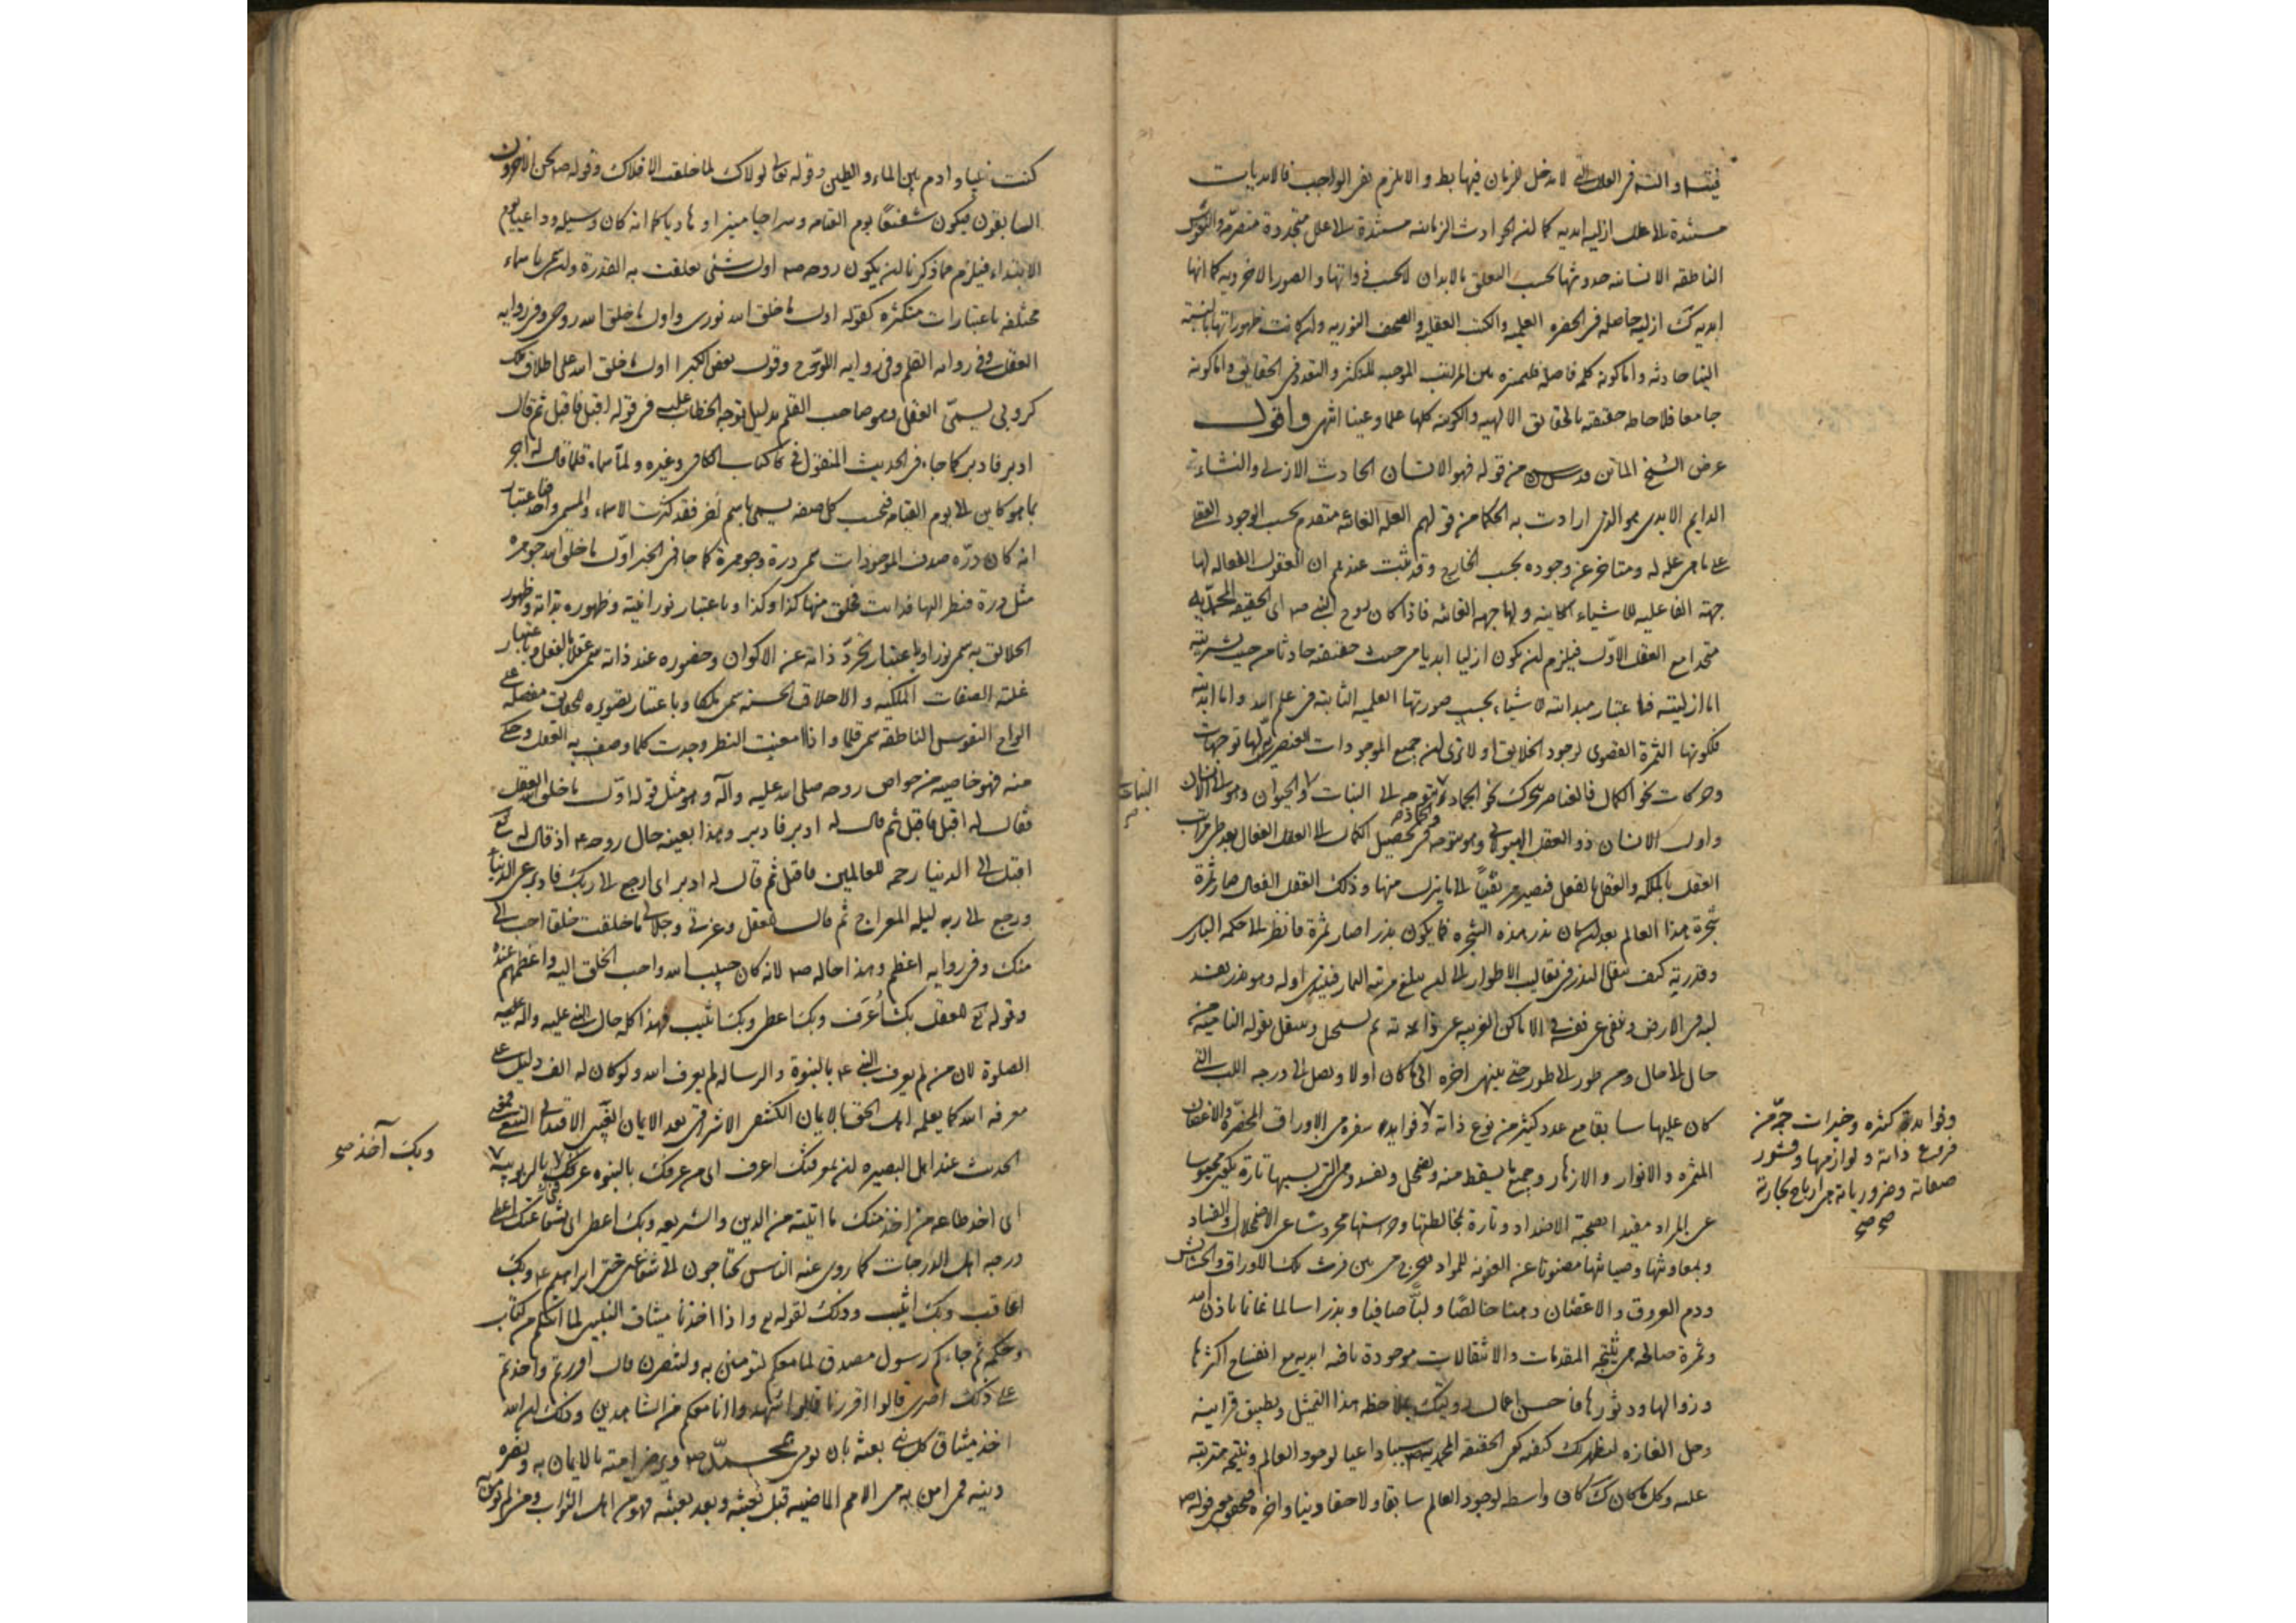 لا مدخل للزمان فيها والا يلزم نفى الواجب فالابديات
مستندة الى علل ازليه ابديه كما ان الحوادث الزمانيه مستندة الى علل متجددة متصرمة والنفوس
الناطقه الانسانيه حدوثها بحسب التعلق بالابدان لا بحسب ذواتها والصور الاخرويه كما انها
ابديه كذلك ازليه حاصله فى الحضره العلميه والكتب العقليه والصحف النوريه وان كانت ظهوراتها بالنسبة
الينا حادثه واما كونه كلمه فاصله فلتميزه بين المراتب الموجبه للتكثر والتعدد فى الحقايق واما كونه
جامعا فلاحاطه حقيقته بالحقايق الالهيه والكونيه كلها علما وعينا انتهى واقول
غرض الشيخ الماتن قدس سره من قوله فهو الانسان الحادث الازلى والنشاءة
الدايم الابدى هو الذى ارادت به الحكما من قولهم العله الغائيه متقدم بحسب الوجود العقلى
على ما هى عله له ومتاخر عن وجوده بحسب الخارج وقد ثبت عندهم ان العقول الفعاله لها
جهة الفاعليه للاشياء الكاينه ولها جهه الغائيه فاذا كان روح النبى ص اى الحقيقه المحمديه
متحدا مع العقل الاول فيلزم ان يكون ازليا ابديا من حيث حقيقته حادثا من حيث بشريته
اما ازليته فباعتبار مبدائته للاشياء بحسب صورتها العلميه الثابته فى علم الله واما ابديته
فلكونها الثمرة القصوى لوجود الخلايق او لا ترى ان جميع الموجودات العنصريه لها توجهات
وحركات نحو الكمال فالعناصر يتحرك نحو الجماد متوجه الى النبات والحيوان وهو الى الانسان
النبات
واول الانسان ذو العقل الهيولانى وهو متوجه نحو تحصيل الكمال الى العقل الفعال بعد طى مراتب
العقل بالملكه والعقل بالفعل فيصير مرتقيا الى ما ينزل منها وذلك العقل الفعال صار ثمرة
شجرة هذا العالم بعد ان كان بذر هذه الشجره فما يكون بذرا صار ثمرة فانظر الى حكمه البارى
وقدرته كيف ينقل البذر فى تقاليب الاطوار الى ان يبلغ مرتبه الثمار
حال الى حال ومن طور الى طور حتى ينتهى اخره الى ما كان اولا ويصل الى درجه اللب التى
كان عليها سابقا مع عدد كثير من نوع ذاته وفوايد سفره من الاوراق المخضرة والاغصان
وفوايد كثيره وخيرات جمة من
فروع ذاته ولوازمها وقشور
صفاته وضروريات هى ارباح تجارته
صح صح
المثمره والانوار والازهار وجميع ما يسقط منه ويضمحل ويفسد
عن المراد مقيدا بصحبة الاضداد وتارة بمخالطتها وحراستها محروسا عن الاضمحلال والفساد
وبمعاونتها وصيانتها مصونا عن العفونه للمواد فيخرج من بين فرث تلك الاوراق والحشايش
ودم العروق والاغصان دهنا خالصا ولبا صافيا وبذرا سالما غانما باذن الله
وثمرة صالحه هى نتيجه المقدمات والانتقالات موجودة باقيه ابديه مع انفساخ اكثرها
وزوالها ودثورها فاحسن اعمال رويتك بملاحظه هذا التمثيل وتطبيق قراينه
وحل الغازه ليظهر لك كيفيه كون الحقيقه المحمديه ص سببا داعيا لوجود العالم ونتيجه مترتبه
عليه وكما كان كذلك كان واسطه لوجود العالم سابقا ولاحقا دنيا واخرة فتحقق معنى قوله ص
كنت نبيا وادم بين الماء والطين وقوله تعالى لولاك لما خلقت الافلاك وقوله ص نحن الاخرون
السابقون فيكون شفيعا يوم القيامه وسراجا منيرا وهاديا كما انه كان وسيله وداعيا يوم
الابتداء فيلزم مما ذكرنا ان يكون روحه ص اول شئى تعلقت به القدرة وان سمى باسماء
مختلفه باعتبارات متكثره كقوله اول ما خلق الله نورى واول ما خلق الله روحى وفى روايه
العقل وفى روايه القلم وفى روايه اللوح وقول بعض الكبرا اول ما خلق الله على اطلاق ملك
كروبى يسمى العقل وهو صاحب القلم بدليل توجه الخطاب عليه فى قوله اقبل فاقبل ثم قال
ادبر فادبر كما جاء فى الحديث المنقول فى كتاب الكافى وغيره ولما سماه قلما قال له اجر
بما هو كاين الى يوم القيامه فبحسب كل صفه يسمى باسم اخر فقد كثرت الاسماء والمسمى واحد فباعتبار
انه كان درة صدف الموجودات سمى درة وجوهرة كما جا فى الخبر اول ما خلق الله جوهره
مثل درة فنظر اليها فذابت فخلق منها كذا وكذا وباعتبار نورانيته وظهوره بذاته وظهور
الخلايق به سمى نورا وباعتبار تجرد ذاته عن الاكوان وحضوره عند ذاته سمى عقلا بالفعل وباعتبار
غلبة الصفات الملكيه والاخلاق الحسنه سمى ملكا وباعتبار تصويره للحقايق مفصله على
الواح النفوس الناطقه سمى قلما واذا امعنت النظر وجدت كلما وصف به العقل وحكى
عنه فهو خاصيه من خواص روحه صلى الله عليه وآله وهو مثل قوله اول ما خلق الله العقل
فقال له اقبل فاقبل ثم قال له ادبر فادبر وهذا بعينه حال روحه ص اذ قال له تع
اقبل الى الدنيا رحمه للعالمين فاقبل ثم قال له ادبر اى ارجع الى ربك فادبر عن الدنيا
ورجع الى ربه ليله المعراج ثم قال للعقل وعزتى وجلالى ما خلقت خلقا احب الى
منك وفى روايه اعظم وهذا حاله ص لانه كان حبيب الله واحب الخلق اليه واعظمهم عنده
وقوله تع للعقل بك اُعرَف وبك اعطى وبك اثيب فهذا كله حال النبى عليه وآله
الصلوة لان من لم يعرف النبى ص بالنبوة والرساله لم يعرف الله ولو كان له الف دليل على
معرفه الله كما يعلمه اهل الحق بالايمان الكشفى الاشراقى بعد الايمان الغيبى
وبك آخذ صح
الحديث عند اهل البصيره ان بمعرفتك اعرف اى من عرفك بالنبوه عرفنى بالربوبيه
اى اخذ طاعه من اخذ منك ما اتيته من الدين والشريعه وبك اعطى اى بشفاعتك اعطى
درجه اهل الدرجات كما روى عنه الناس يحتاجون الى شفاعتى حتى ابراهيم ع وبك
اعاقب وبك اثيب وذلك لقوله تع واذ اخذنا ميثاق النبيين لما اتيتكم من كتاب
وحكمة ثم جاءكم رسول مصدق لما معكم لتومنن به ولتنصرن قال اقررتم واخذتم
على ذلك اصرى قالوا اقررنا قال فاشهدوا وانا معكم من الشاهدين وذلك ان الله
اخذ ميثاق كل نبى بعثه بان يومن بمحمد ص ويوصى امته بالايمان به ونصره
دينه فمن امن به من الامم الماضيه قبل بعثه وبعد بعثه فهو من اهل الثواب ومن لم يومن به